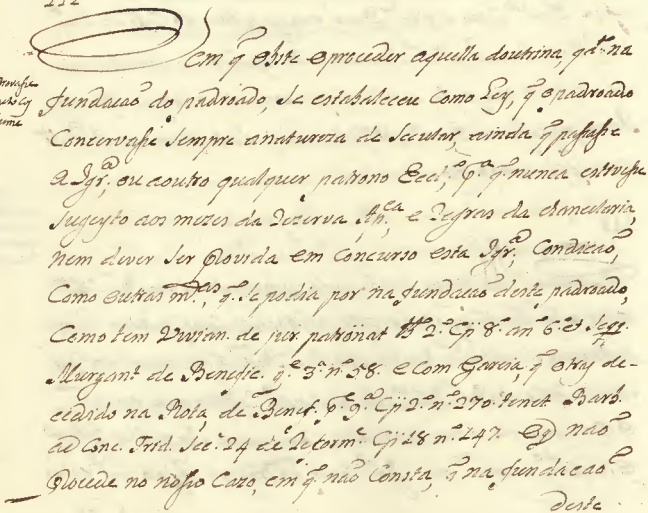 112
em q̃ obste oproceder aquella doutrina, qd.º na
fundacaõ do padroado, se estabaleceu como Ley, q̃ opadroado
Concervasse sempre anatureza de secular, ainda q̃ passasse
a Igr.ª, ou aoutro qualquer patrono Eccl.º, p.ª q̃ nunca estivesse
sugeyto aos mezes da Rezerva Ap.ca, e Regras da chancelaria,
nem dever ser Provida em Concurso esta Igr.ª, Condicaõ,
Como outras m.tas, q̃ se podia por na fundacaõ deste padroado,
Como tem Vivian. de jur patronat 2.º Cp 8.º an.º 6.º et seqq.
Murgant.º de Benefic. q.e 3.ª n.º 58. e com Garcia, q̃ o tras de-
cedido na Rota, de Benef. p.e 9.ª Cp 2.º n.º 270. tenet Barb.
ad Conc. Trid. Sec.º 24 de Reform.e Cp 18 n.º 147. naõ
Procede no nosso Cazo, em q̃ naõ Consta, q̃ na fundacaõ
deste